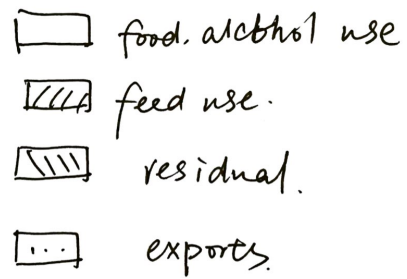 food. alcohol use
feed use.
residual.
exports.